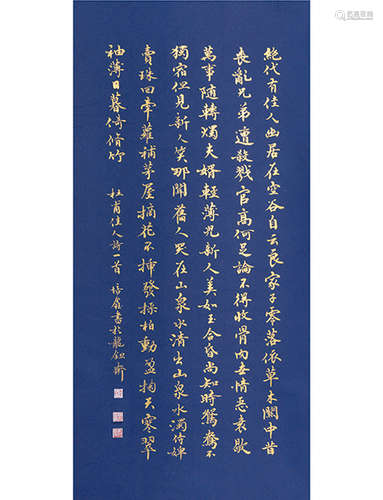 絕代有佳人幽居在空谷自云良家子零落依草木關中昔
喪亂兄弟遭殺戮官高何足論不得收骨肉世情惡衰歇
萬事隨轉燭夫婿輕薄兒新人美如玉合昏尚知時鴛鴦不
獨宿但見新人笑那聞舊人哭在山泉水清出山泉水濁侍婢
賣珠回牽蘿補茅屋摘花不插髮採柏動盈掬天寒翠
袖薄日暮倚脩竹
杜甫佳人詩一首